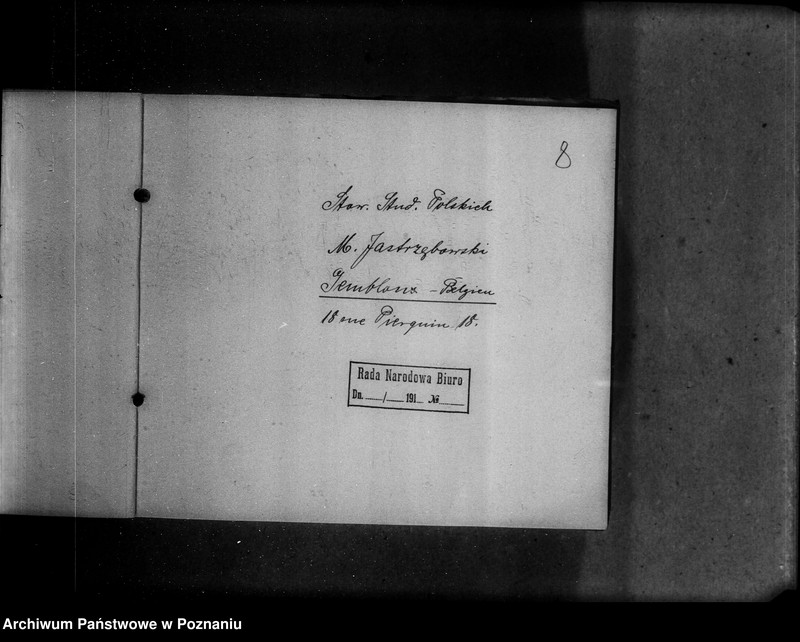 8
Stow. Stud. Polskich
M. Jastrzębowski
Gembloux - Belgien
18 rue Pierquin 18.
Rada Narodowa Biuro
Dn. / 191 №
Archiwum Państwowe w Poznaniu